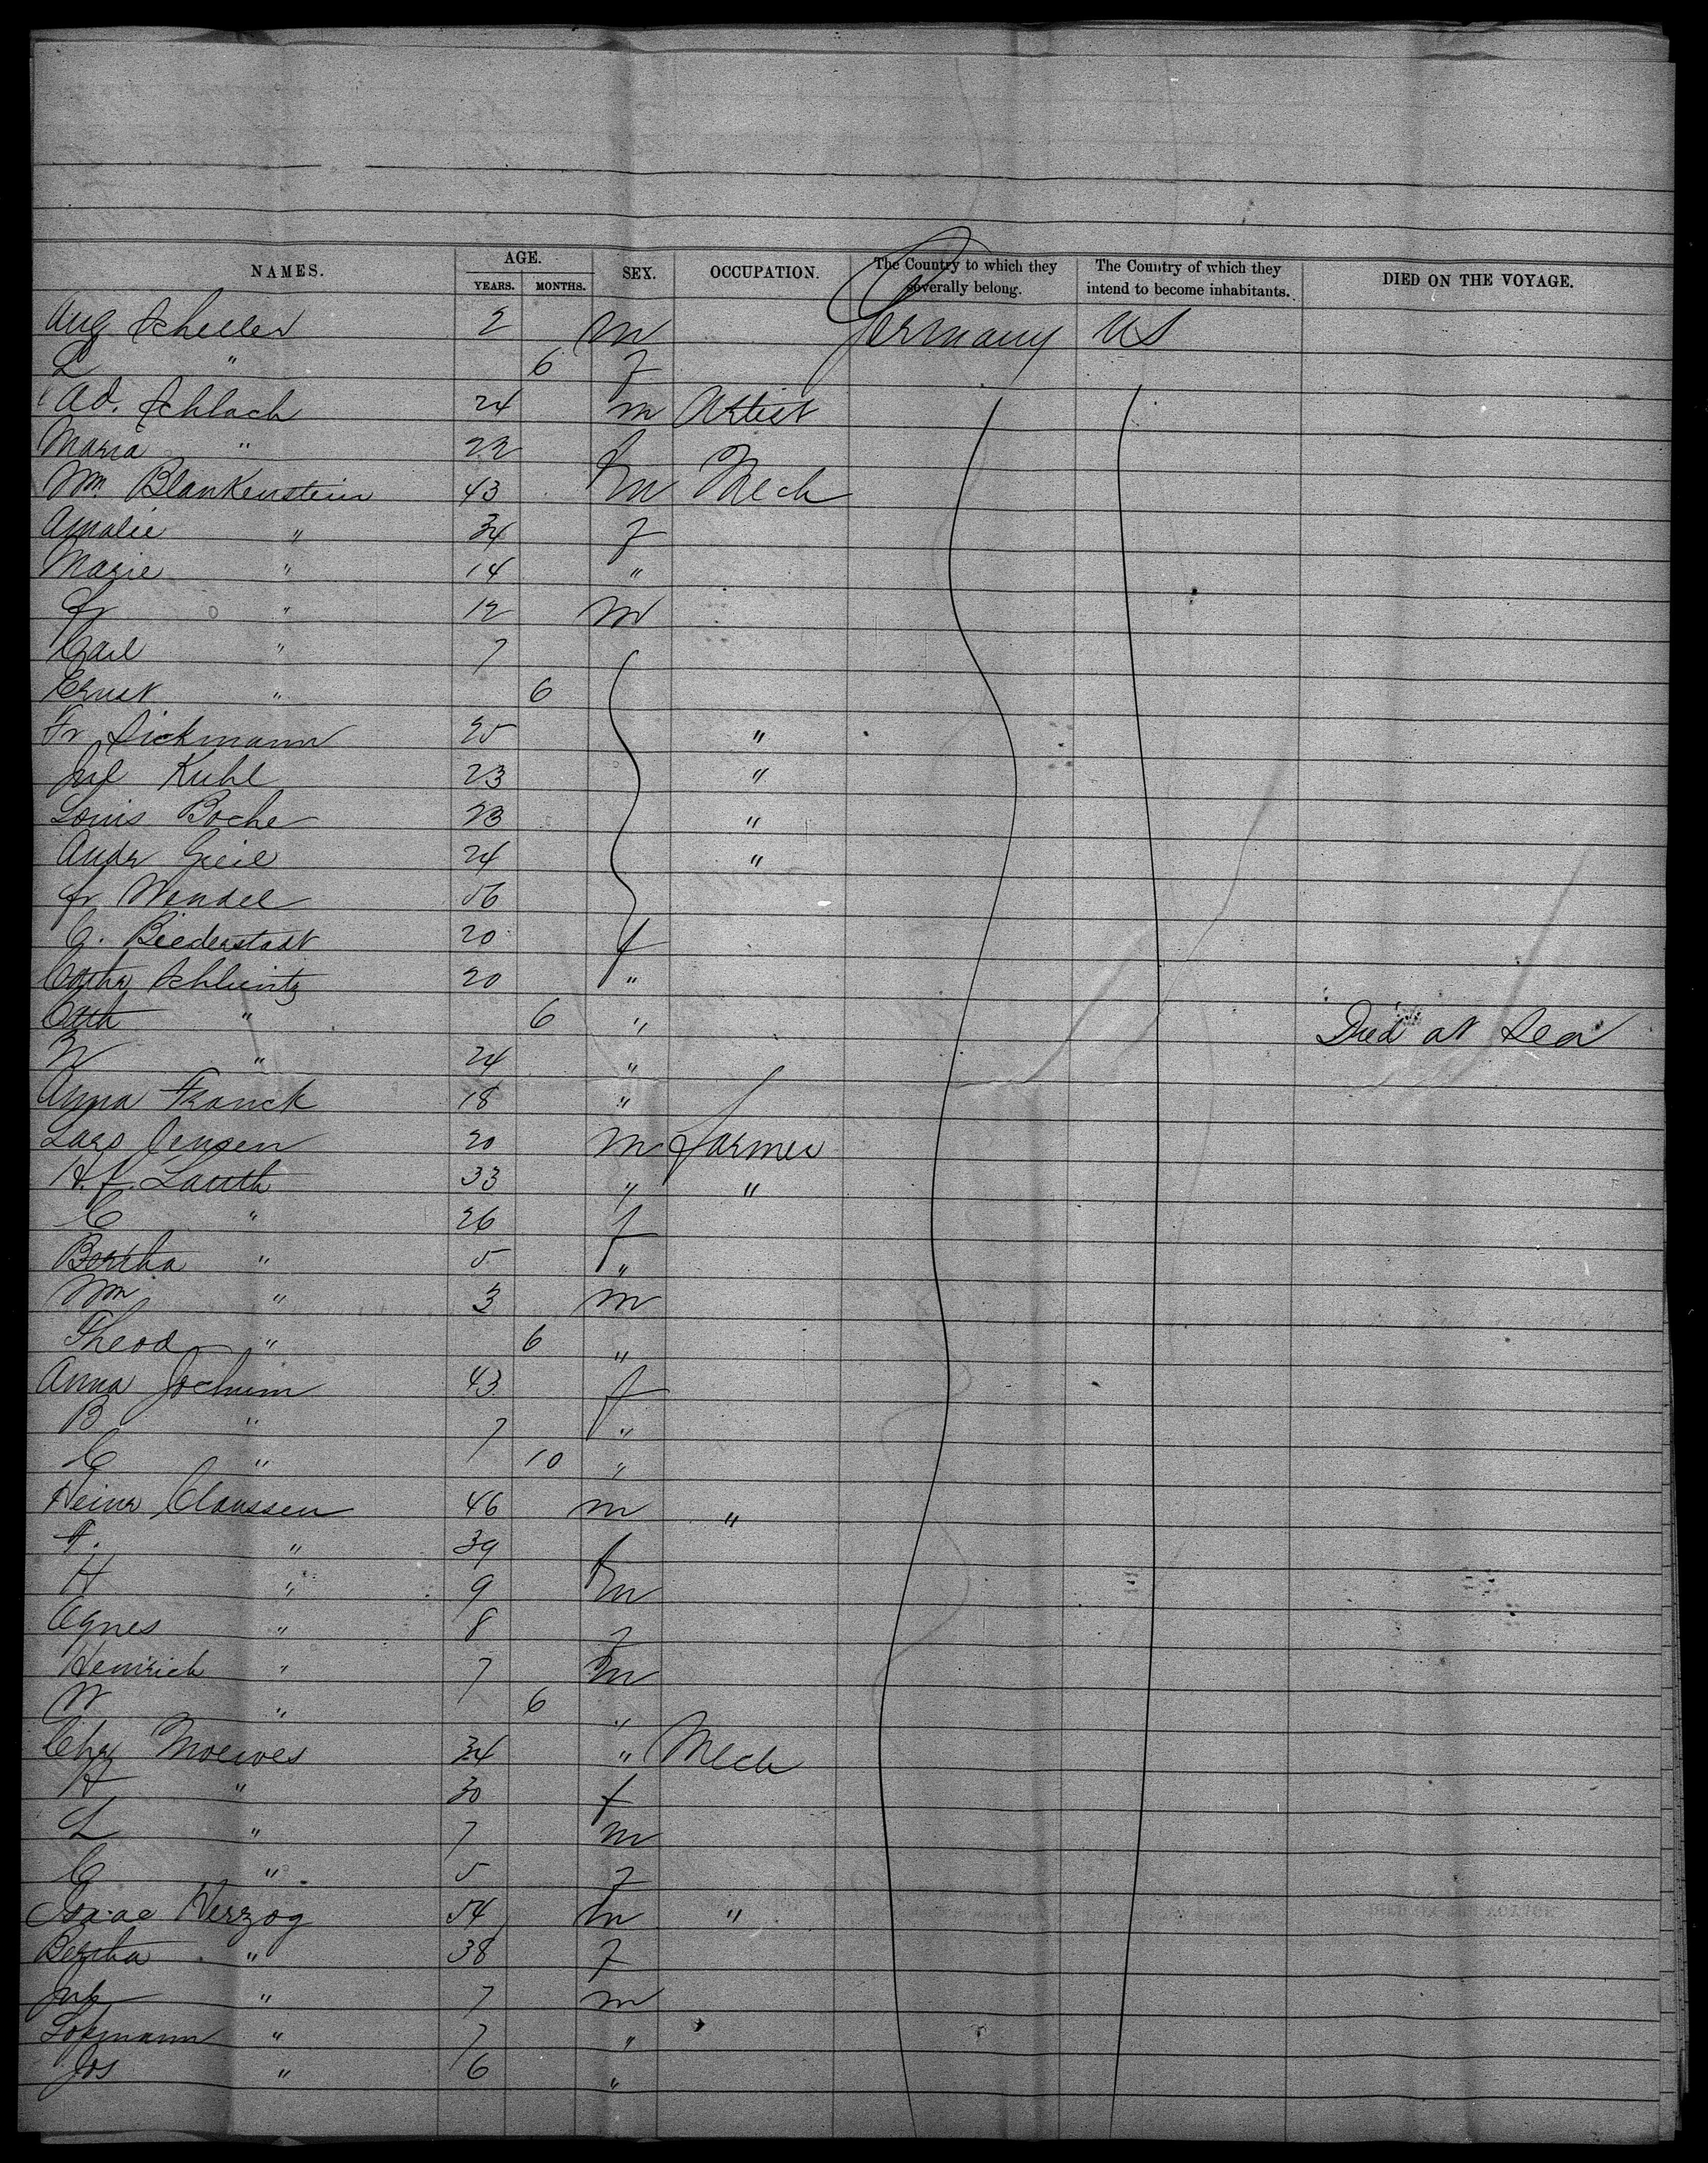 NAMES. AGE. YEARS. MONTHS. SEX. OCCUPATION. The Country to which they severally belong. The Country of which they intend to become inhabitants. DIED ON THE VOYAGE.
Aug Scheller 2 m Germany US
L " 6 f
Ad. Schlach 24 m Artist
Maria " 22 f
Wm Blankenstein 43 m Mech
Amalie " 34 f
Marie " 14 "
Fr " 12 m
Carl " 7
Ernst " 6
Fr Dickmann 25 "
Jul Kuhl 23 "
Louis Boche 23 "
Andr Greil 24 "
Fr Wendel 56
C. Biederstadt 20 f
Cathr Schlientz 20 "
Cath " 6 " Died at Sea
W " 24 "
Anna Franck 18 "
Lars Jensen 20 m Farmer
H. f. Lauth 33 " "
C " 26 f
Bertha " 5 "
Wm " 3 m
Theod " 6 "
Anna Jochum 43 f
B " 7 "
C " 10 "
Heinr Claussen 46 m "
F. " 39 f
H " 9 m
Agnes " 8 f
Heinrich " 7 m
W " 6 "
Chr Moewes 34 " Mech
H " 30 f
L " 7 m
C " 5 f
Isaac Herzog 54 m "
Bertha " 38 f
Jul " 7 m
" 7 "
Jos " 6 "